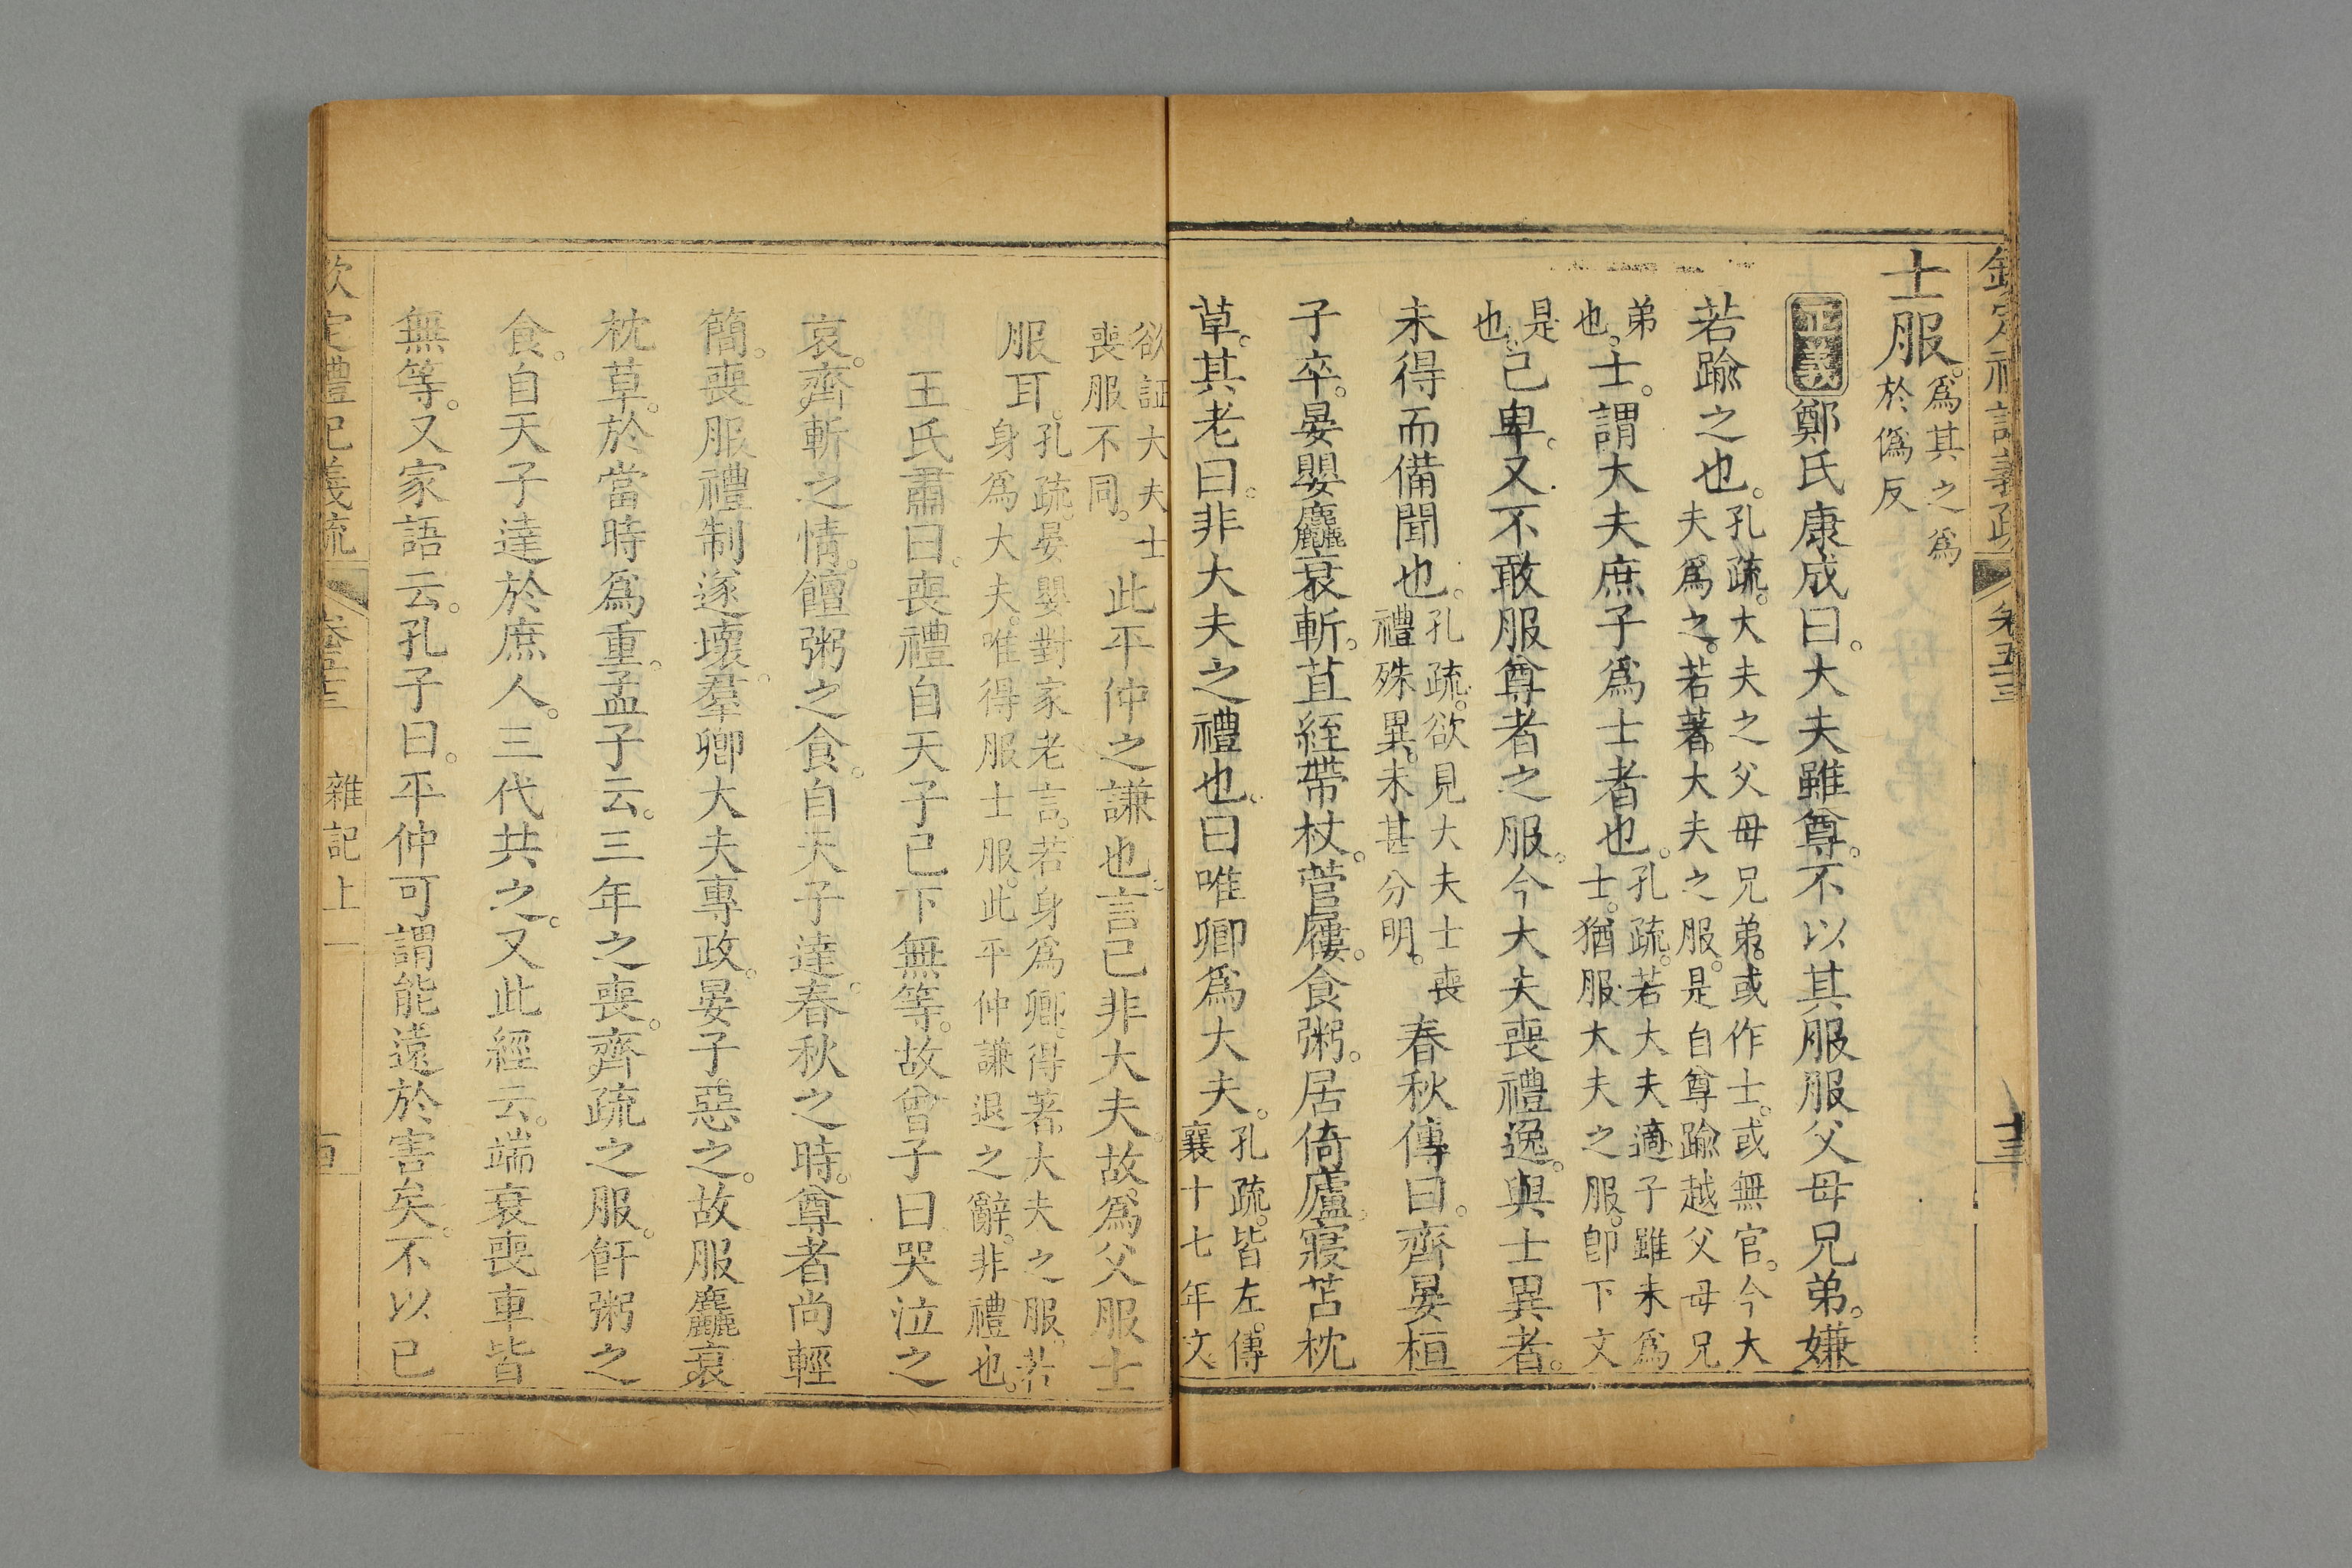 欽定禮記義疏 卷五十三 十三
士服。爲其之爲於僞反
正義鄭氏康成曰。大夫雖尊。不以其服服父母兄弟。嫌
若踰之也。孔疏。大夫之父母兄弟。或作士。或無官。今大夫爲之。若著大夫之服。是自尊踰越父母兄
弟也。士。謂大夫庶子爲士者也。孔疏。若大夫適子雖未爲士。猶服大夫之服。卽下文
是也。己卑。又不敢服尊者之服。今大夫喪禮逸。與士異者。
未得而備聞也。孔疏。欲見大夫士喪禮殊異。未甚分明。春秋傳曰。齊晏桓
子卒。晏嬰麤衰斬。苴絰帶杖。菅屨。食粥。居倚廬。寢苫枕
草。其老曰。非大夫之禮也。曰唯卿爲大夫。孔疏。皆左。傳襄十七年文。
欲証大夫士喪服不同。此平仲之謙也。言己非大夫。故爲父服士
服耳。孔疏。晏嬰對家老言。若身爲卿。得著大夫之服。若身爲大夫。唯得服士服。此平仲謙退之辭。非禮也。
王氏肅曰。喪禮自天子已下無等。故曾子曰哭泣之
哀。齊斬之情。饘粥之食。自天子達。春秋之時。尊者尚輕
簡。喪服禮制遂壞。羣卿大夫專政。晏子惡之。故服麤衰
枕草。於當時爲重。孟子云。三年之喪。齊疏之服。飦粥之
食。自天子達於庶人。三代共之。又此經云。端衰喪車皆
無等。又家語云。孔子曰。平仲可謂能遠於害矣。不以己
欽定禮記義疏 卷五十三 雜記上